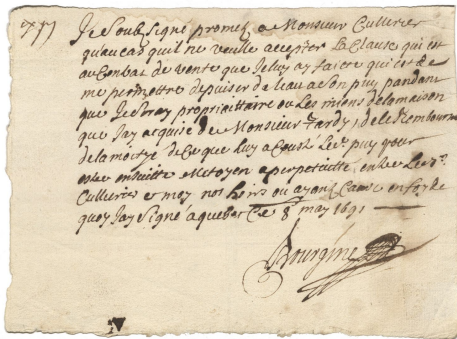 Je Soubsigné promet a Monsieur Cullerier
qu'au cas qu'il ne veuille accepter La Clause qui est
au Contrat de vente que Je luy ay faicte qui est de
me permettre de puiser de l'eau a son puy pandant
que Je seray propriettaire ou Les miens de la maison
que J'ay acquise de Monsieur Tardy, de le Rembourser
de la moitye de Ce que luy a Cousté Led. puy pour
estre ensuitte mitoyen a perpetuitte, entre Led. Sr.
Cullerier et moy nos hoirs ou ayans Cause en foy de
quoy J'ay signé a quebec Ce 8e may 1691
Bourgine